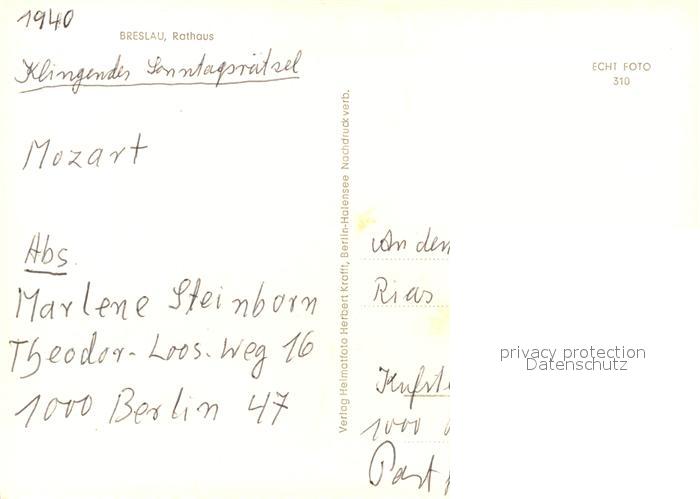 1940
BRESLAU, Rathaus
Klingendes Sonntagsrätsel
Mozart
Abs.
Marlene Steinborn
Theodor-Loos-Weg 16
1000 Berlin 47
Verlag Heimatfoto Herbert Krafft, Berlin-Halensee Nachdruck verb.
ECHT FOTO
310
An den
Rias
Kufste
1000
Post
privacy protection
Datenschutz